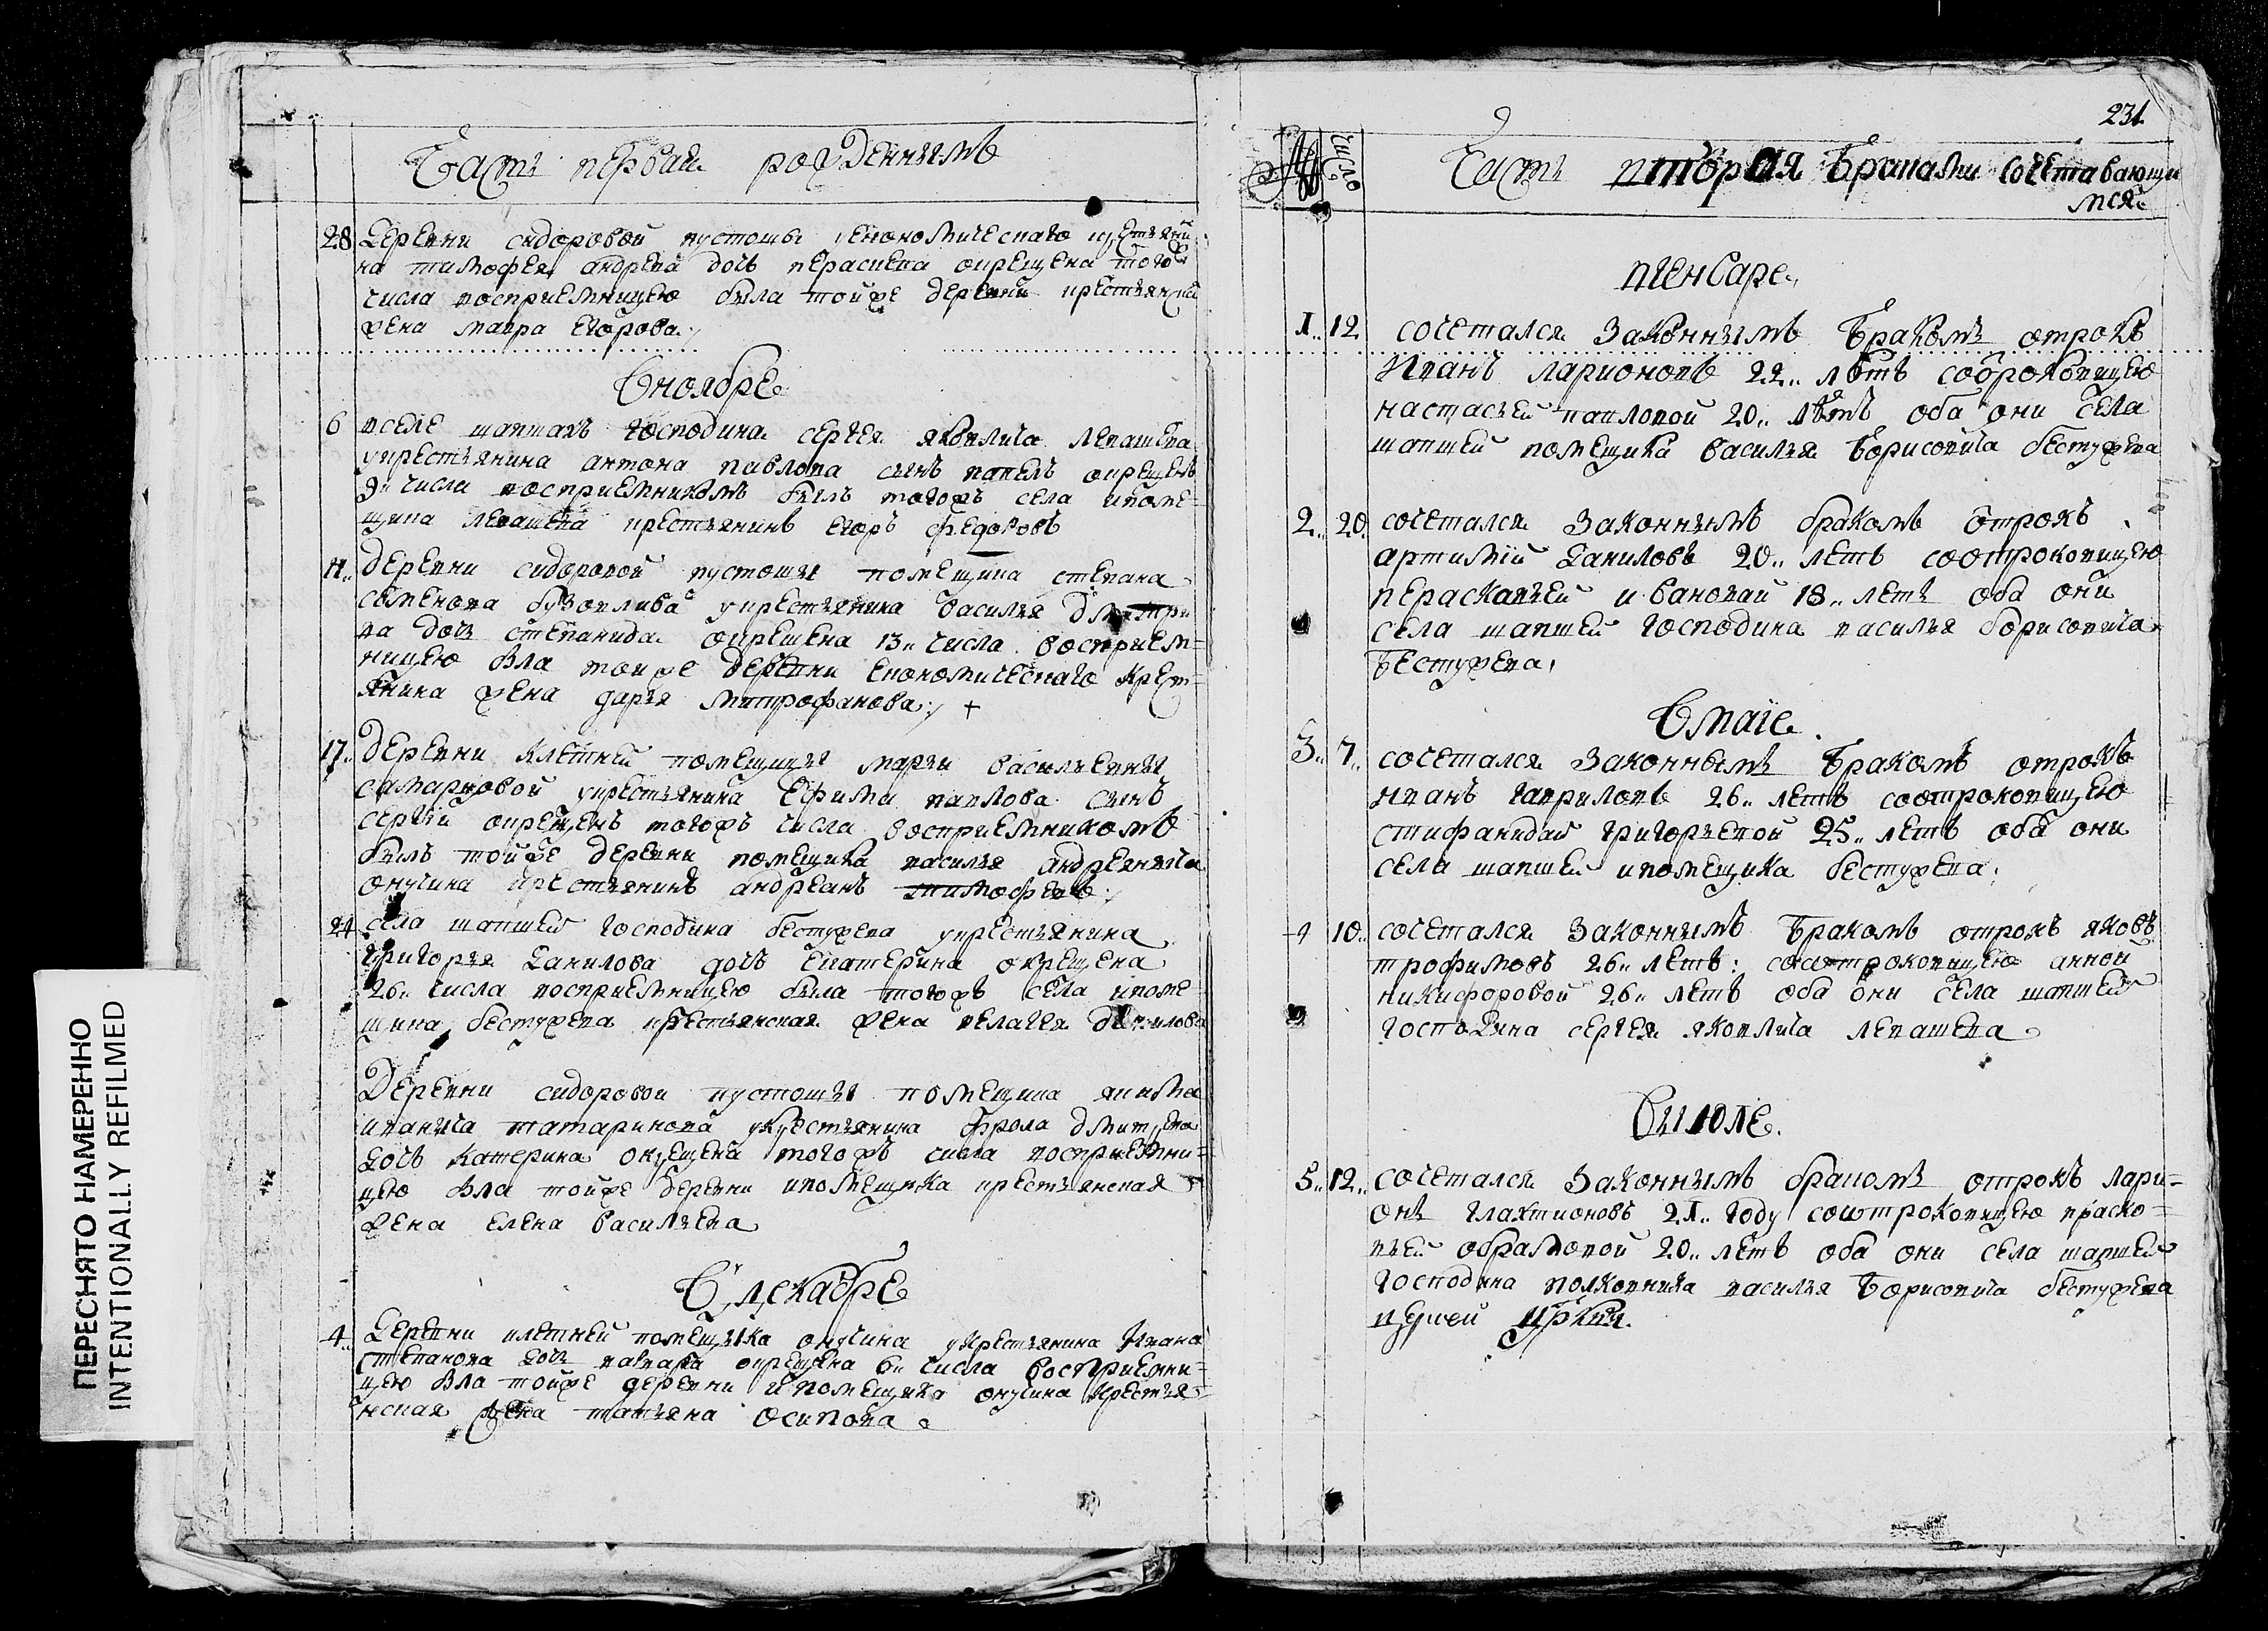 Часть первая рожденнымъ
28 Деревни сидоровой пустоши уекономическаго крестьяни
на тимофея андреева дочь параскева окрещена того ж
числа восприемницею была тойже деревни крестьянская
жена мавра егорова
Вноябре
6 вселе шапшахъ господина сергея яковлича левашева
укрестьянина антона павлова сынъ павелъ окрещенъ
9 числа восприемникомъ былъ тогожъ села ипоме-
щика левашева крестьянинъ егоръ федоровъ
11 деревни сидоровой пустоши помещика степана
семенова укрестьянина василья дмитри
ва дочь степанида окрещена 13 числа восприем-
ницею бла тойже деревни економическаго крест-
янина жена дарья митрофанова +
17 деревни клетней помещицы марьи васильевны
самариновой укрестьянина ефима павлова сынъ
сергей окрещенъ тогожъ числа восприемникомъ
былъ тойже деревни помещика василья андреевича
онучина крестьянинъ андреянъ тимофеевъ
24 села шапшей господина бестужева укрестьянина
григорья данилова дочь екатерина окрещена
26 числа восприемницею была тогожъ села ипоме
щика бестужева крестьянская жена пелагея данилова
Деревни сидоровои пустоши помещика якима
иванича татаринова укрестьянина фрола дмитрева
дочь катерина окрещена тогожъ числа восприемни-
цею бла тойже деревни ипомещика крестьянская
жена елена васильева
В декабре
4 Деревни клетней помещика онучина укрестьянина Ивана
степанова дочь варвара окрещена 6 числа восприемни-
цею бла тойже деревни ипомещика онучина крестья-
нская жена татьяна осипова
231
число
Часть вторая Бракомъ сочетавающи
мся
вгенваре
1 12 сочетался законнымъ Бракомъ отрокъ
Иванъ ларионовъ 22 летъ соотроковицею
настасьей павловой 20 летъ оба они села
шапшей помещика василья Борисовича бестужева
2 20 сочетался законнымъ бракомъ отрокъ
артимий Даниловъ 20 летъ соотроковицею
пераскавьей ивановай 18 летъ оба они
села шапшей господина василья борисовича
Бестужева
Вмаiе
3 7 сочетался законнымъ Бракомъ отрокъ
иванъ гавриловъ 26 летъ соотроковицею
стифанидай григорьевой 25 летъ оба они
села шапшей ипомещика бестужева
4 10 сочетался законнымъ Бракомъ отрокъ яковъ
трофимовъ 26 летъ: соотроковицею анной
никифоровой 26 летъ оба они села шапшей
господина сергея яковлича левашева
Виюле
5 12 сочетался законнымъ бракомъ отрокъ лари-
онъ глахтионовъ 21 году соотроковицею праско-
вьей обрамовой 20 летъ оба они села шапшей
господина полковника василья Борисовича бестужева
ПЕРЕСНЯТО НАМЕРЕННО
INTENTIONALLY REFILMED